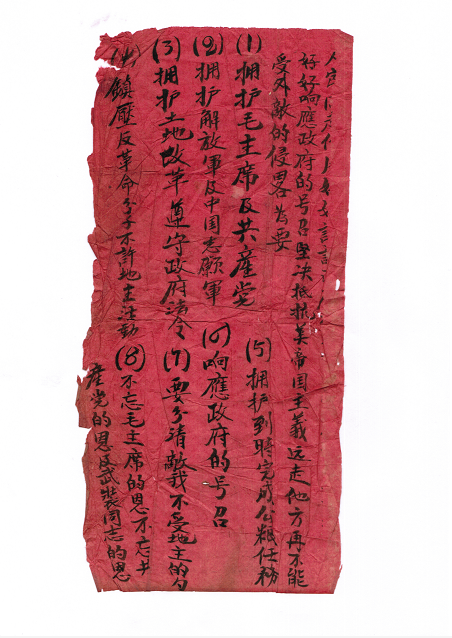 好好响應政府的号召坚决抵抗美帝国主義远走他方再不能
受外敵的侵畧为要
(1)拥护毛主席及共產党
(2)拥护解放軍及中国志願軍
(3)拥护土地改革遵守政府法令
(4)鎮壓反革命分子不許地主活動
(5)拥护到時完成公粮任務
(6)响應政府的号召
(7)要分清敵我不受地主的勾
(8)不忘毛主席的恩不忘共
產党的恩及武裝同志的恩